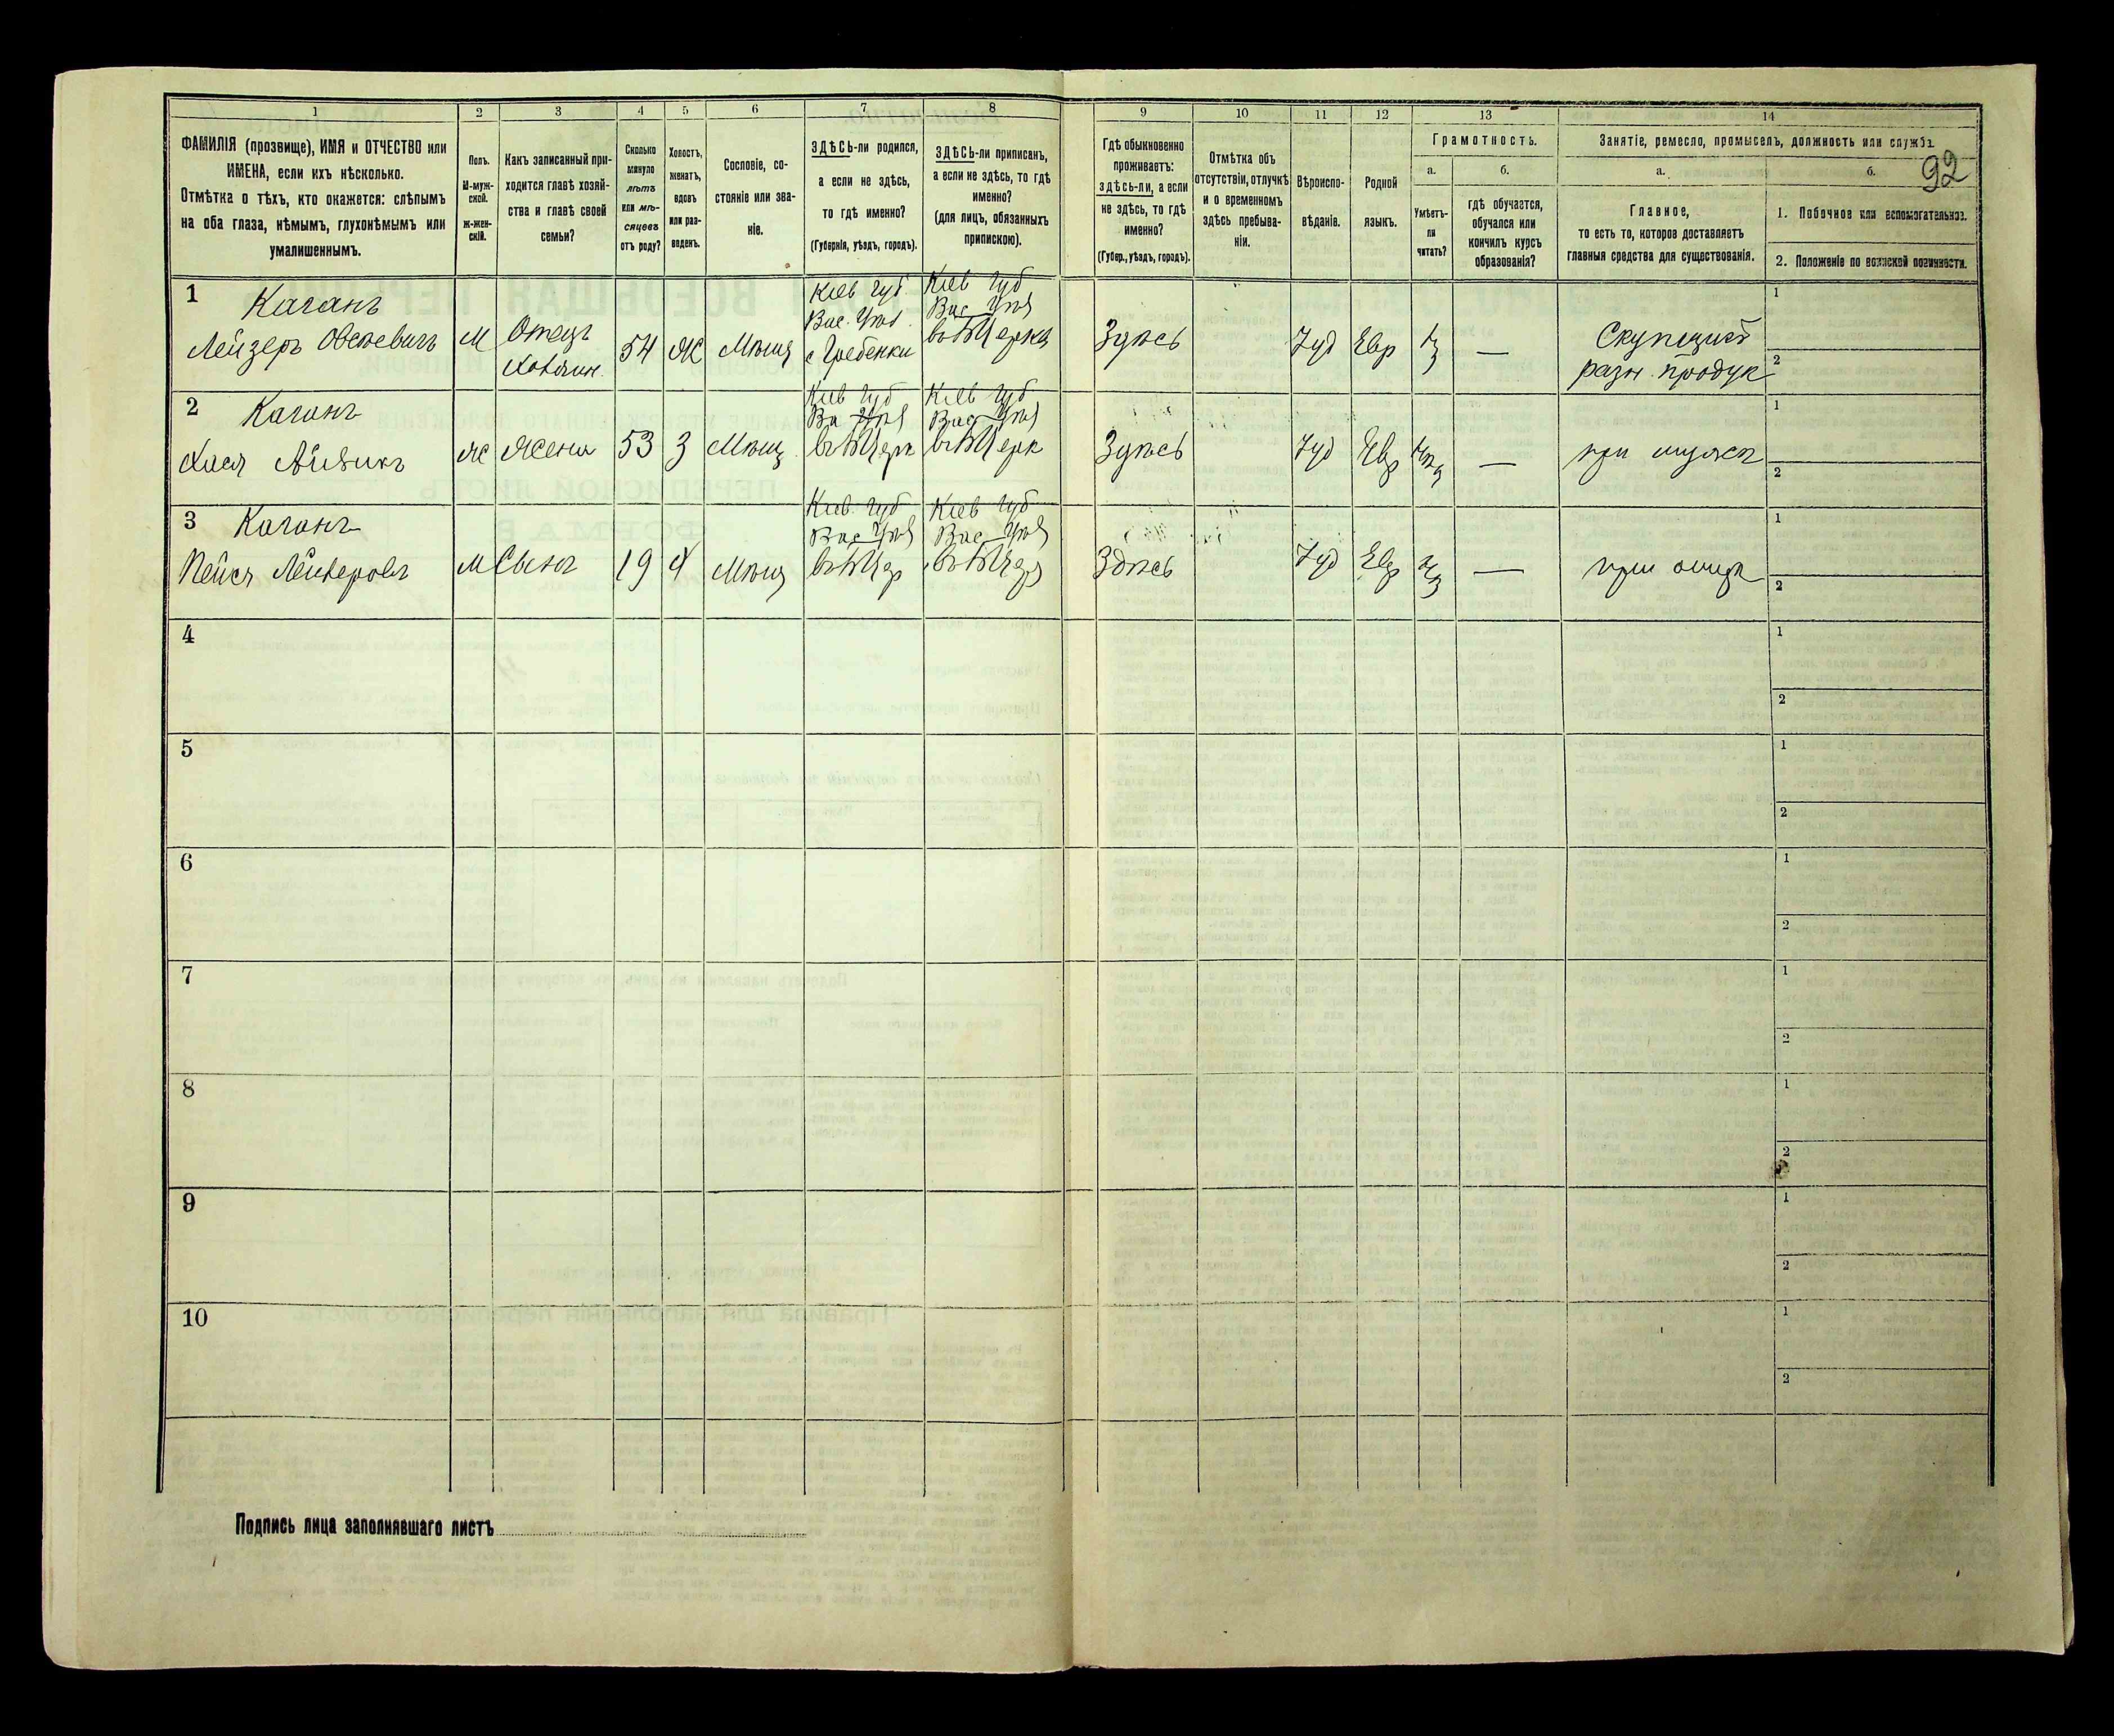 1
2
3
4
5
6
7
8
9
10
11
12
13
14
ФАМИЛІЯ (прозвище), ИМЯ и ОТЧЕСТВО или
ИМЕНА, если ихъ нѣсколько.
Отмѣтка о тѣхъ, кто окажется: слѣпымъ
на оба глаза, нѣмымъ, глухонѣмымъ или
умалишеннымъ.
Полъ.
М-муж-
ской.
ж-жен-
скій.
Какъ записанный при-
ходится главѣ хозяй-
ства и главѣ своей
семьи?
Сколько
минуло
лѣтъ
или мѣ-
сяцевъ
отъ роду?
Холостъ,
женатъ,
вдовъ
или раз-
веденъ.
Сословіе, со-
стояніе или зва-
ніе.
ЗДѢСЬ-ли родился,
а если не здѣсь,
то гдѣ именно?
(Губернія, уѣздъ, городъ).
ЗДѢСЬ-ли приписанъ,
а если не здѣсь, то гдѣ
именно?
(для лицъ, обязанныхъ
припискою).
Гдѣ обыкновенно
проживаетъ:
здѣсь-ли, а если
не здѣсь, то гдѣ
именно?
(Губер., уѣздъ, городъ).
Отмѣтка объ
отсутствіи, отлучкѣ
и о временномъ
здѣсь пребыва-
ніи.
Вѣроиспо-
вѣданіе.
Родной
языкъ.
Грамотность.
а.
Умѣетъ-
ли
читать?
б.
гдѣ обучается,
обучался или
кончилъ курсъ
образованія?
Занятіе, ремесло, промыселъ, должность или служба.
92
а.
Главное,
то есть то, которое доставляетъ
главныя средства для существованія.
б.
1. Побочное или вспомогательное.
2. Положеніе по воинской повинности.
1 Каганъ
Лейзеръ Овсеевичъ
М
Отецъ
Хозяин.
54
Ж
Мѣщ
Кіев Губ.
Вас. Уѣз.
с Гребенки
Кіев Губ
Вас Уѣз
Здѣсь
Іуд
Евр
—
Скупщикъ
разн. продук
1
2
2 Каганъ
Хася
Ж
Жена
53
З
Мѣщ
Кіев Губ
Вас Уѣз
Кіев Губ
Вас Уѣз
Здѣсь
Іуд
Евр
—
при мужѣ
1
2
3 Каганъ
Пейся Лейзеровъ
М
Сынъ
19
Х
Мѣщ
Кіев Губ
Вас Уѣз
Кіев Губ
Вас Уѣз
Здѣсь
Іуд
Евр
—
при отцѣ
1
2
4
1
2
5
1
2
6
1
2
7
1
2
8
1
2
9
1
2
10
1
2
Подпись лица заполнявшаго листъ